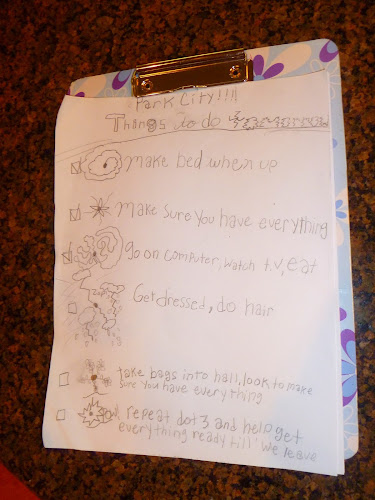 Park City!!!!
Things to do tomorrow
make bed when up
make sure you have everything
go on computer, watch t.v, eat
Get dressed, do hair
take bags into hall, look to make
sure you have everything
repeat dot 3 and help get
everything ready till' we leave